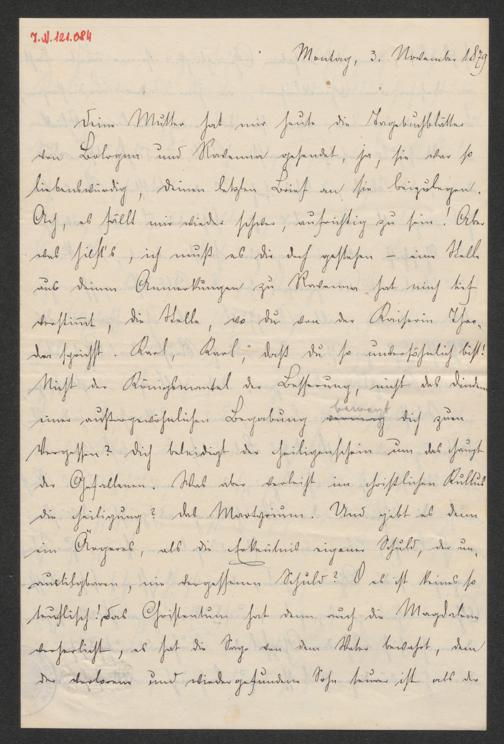 I.N. 121.084
Montag, 3. November 1879
Deine Mutter hat mir heute die Tagebuchblätter
von Bologna und Ravenna gesendet, ja, sie war so
liebenswürdig, Deinen letzten Brief an sie beizulegen.
Ach, es fällt mir wieder schwer, aufrichtig zu sein! Aber
was hilft's, ich muß es dir doch gestehen – eine Stelle
aus deinen Anmerkungen zu Ravenna hat mich tief
verstimmt, die Stelle, wo du von der Kaiserin Theo-
dora sprichst. Karl, Karl, daß du so unversöhnlich bist!
Nicht der Königsmantel der Besserung, nicht das Diadem
einer außergewöhnlichen Begabung vermag dich zum
vermocht
Vergessen? Dich beleidigt der Heiligenschein um das Haupt
der Gefallenen. Was aber verleiht im christlichen Kultus
die Heiligung? Das Martyrium. Und gibt es denn
ein Ärgeres, als die Erkenntnis eigener Schuld, der un-
austilgbaren, nie vergessenen Schuld? O es ist keines so
teuflisch! Das Christentum hat denn auch die Magdalena
verherrlicht, es hat die Sage von dem Vater bewahrt, dem
der verlorene und wiedergefundene Sohn teurer ist als der